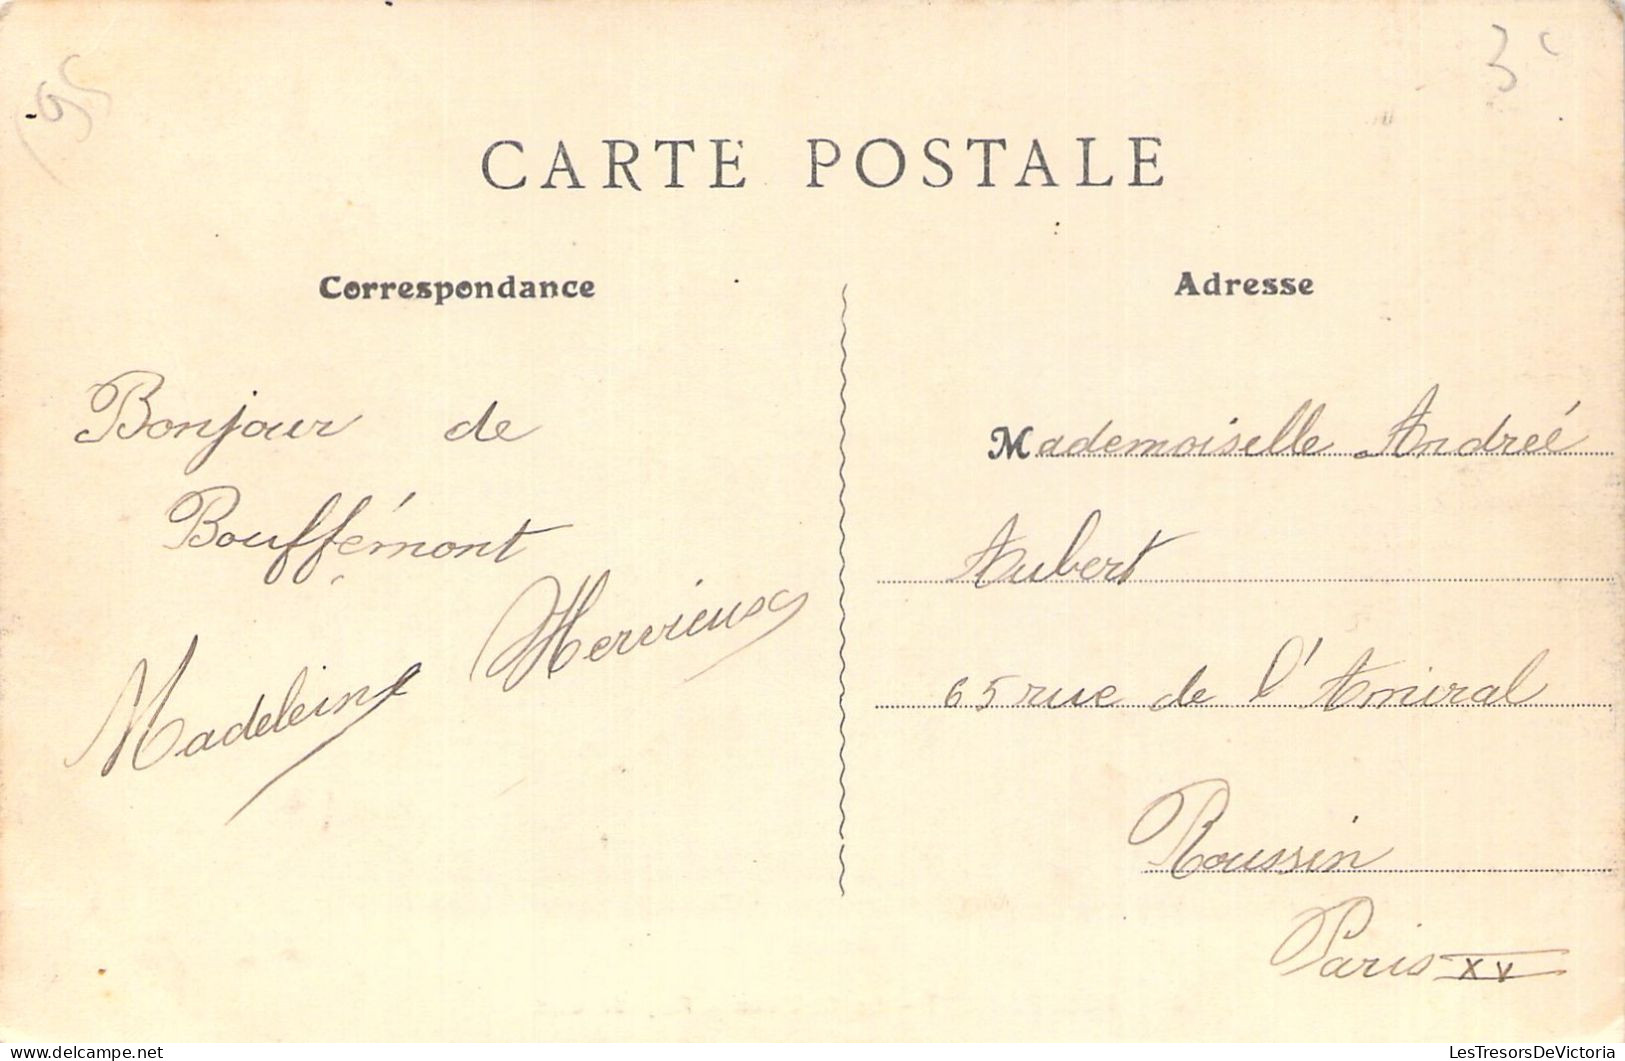 95
3
CARTE POSTALE
Correspondance
Adresse
Bonjour de
Bouffémont
Madeleine Hervieux
Mademoiselle Andrée
Aubert
65 rue de l'Amiral
Roussin
Paris XV
LesTresorsDeVictoria